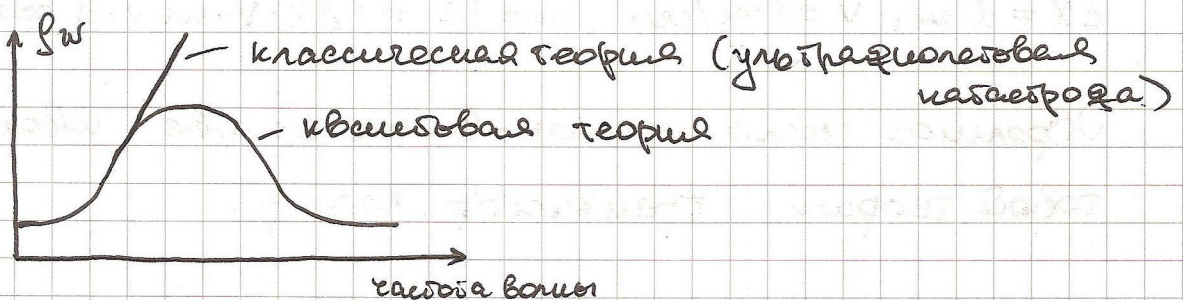 ρω
классическая теория (ультрафиолетовая
катастрофа)
квантовая теория
частота волны